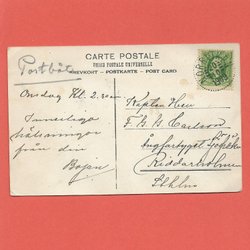 CARTE POSTALE
UNION POSTALE UNIVERSELLE
BREVKORT - POSTKARTE - POST CARD
Postbåt
Onsdag Kl. 2.30 em.
Innerliga
hälsningar
från din
Kapten Herr
F. B. B. Carlson
Ångfartyget
Riddarholmen
Sthlm